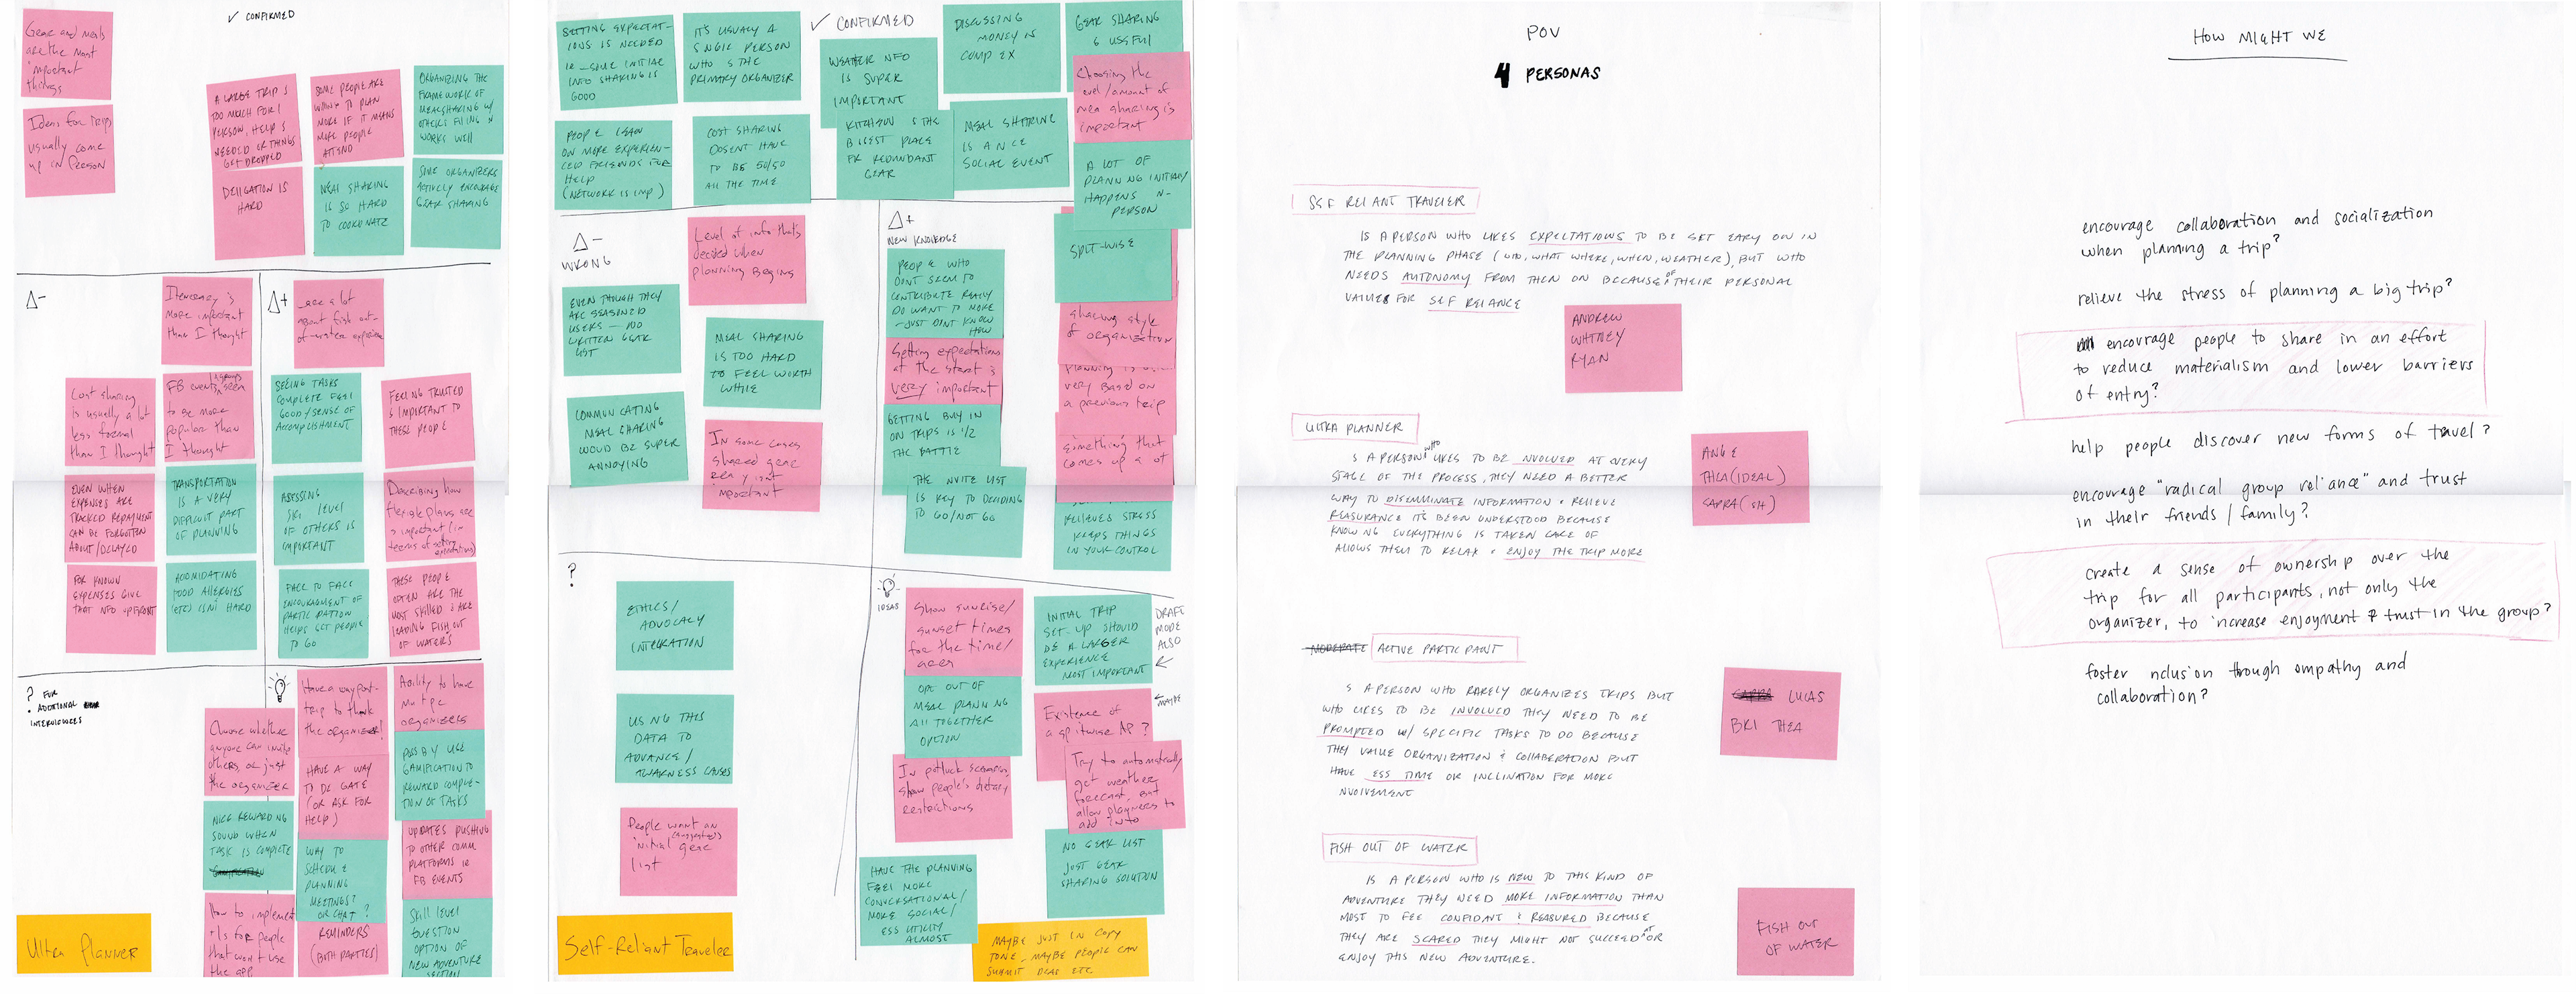 ✓ CONFIRMED
Gear and meals
are the most
important
things
Ideas for trips
usually come
up in person
A LARGE TRIP IS
TOO MUCH FOR 1
PERSON, HELP IS
NEEDED OR THINGS
GET DROPPED
SOME PEOPLE ARE
WILLING TO PLAN
MORE IF IT MEANS
MORE PEOPLE
ATTEND
ORGANIZING THE
FRAMEWORK OF
MEALSHARING W/
OTHERS FILLING IN
WORKS WELL
DELIGATION IS
HARD
MEAL SHARING
IS SO HARD
TO COORDINATE
SOME ORGANIZERS
ACTIVELY ENCOURAGE
GEAR SHARING
Δ-
Itinerary is
more important
than I thought
Cost sharing
is usually a lot
less formal
than I thought
FB events/groups seem
to be more
popular than
I thought
EVEN WHEN
EXPENSES ARE
TRACKED REPAYMENT
CAN BE FORGOTTEN
ABOUT/DELAYED
TRANSPORTATION
IS A VERY
DIFFICULT PART
OF PLANNING
FOR KNOWN
EXPENSES GIVE
THAT INFO UPFRONT
ACCOMIDATING
FOOD ALLERGIES
(ETC) ISN'T HARD
Δ+
care a lot
about fish out-
of-water experience
SEEING TASKS
COMPLETE FEELS
GOOD/SENSE OF
ACCOMPLISHMENT
FEELING TRUSTED
IS IMPORTANT TO
THESE PEOPLE
ASSESSING
SKILL LEVEL
OF OTHERS IS
IMPORTANT
Describing how
flexible plans are
is important (in
terms of setting
expectations)
FACE TO FACE
ENCOURAGEMENT OF
PARTICIPATION
HELPS GET PEOPLE
TO GO
THESE PEOPLE
OFTEN ARE THE
MOST SKILLED & ARE
LEADING FISH OUT
OF WATERS
? FOR
ADDITIONAL
INTERVIEWEES
Choose whether
anyone can invite
others, or just
the organizer
Have a way post-
trip to thank
the organizer!
Ability to have
multiple
organizers
NICE REWARDING
SOUND WHEN
TASK IS COMPLETE
HAVE A WAY
TO DELEGATE
(OR ASK FOR
HELP)
POSSIBLY USE
GAMIFICATION TO
REWARD COMPLE-
TION OF TASKS
How to implement
this for people
that won't use
the app
WAY TO
SCHEDULE
PLANNING
MEETINGS?
OR CHAT?
REMINDERS
(BOTH PARTIES)
UPDATES PUSHING
TO OTHER COMM
PLATFORMS IE
FB EVENTS
Skill level
question
OPTION OF
NEW ADVENTURE
Ultra Planner
✓ CONFIRMED
SETTING EXPECTAT-
IONS IS NEEDED
IE - SOME INITIAL
INFO SHARING IS
GOOD
IT'S USUALLY A
SINGLE PERSON
WHO IS THE
PRIMARY ORGANIZER
WEATHER INFO
IS SUPER
IMPORTANT
DISCUSSING
MONEY IS
COMPLEX
GEAR SHARING
IS USEFUL
Choosing the
level/amount of
meal sharing is
important
PEOPLE LEAN
ON MORE EXPERIEN-
CED FRIENDS FOR
HELP
(NETWORK IS IMP)
COST SHARING
DOSENT HAVE
TO BE 50/50
ALL THE TIME
KITCHEN IS THE
BIGGEST PLACE
FOR REDUNDANT
GEAR
MEAL SHARING
IS A NICE
SOCIAL EVENT
A LOT OF
PLANNING INITIALLY
HAPPENS IN-
PERSON
Δ-
WRONG
Level of info that's
decided when
planning begins
EVEN THOUGH THEY
ARE SEASONED
USERS - NO
WRITTEN GEAR
LIST
MEAL SHARING
IS TOO HARD
TO FEEL WORTH
WHILE
COMMUNICATING
MEAL SHARING
WOULD BE SUPER
ANNOYING
In some cases
shared gear
really isn't
important
Δ+
NEW KNOWLEDGE
PEOPLE WHO
DON'T SEEM TO
CONTRIBUTE REALLY
DO WANT TO MORE
- JUST DON'T KNOW
HOW
Setting expectations
at the start is
very important
GETTING BUY IN
ON TRIPS IS 1/2
THE BATTLE
THE INVITE LIST
IS KEY TO DECIDING
TO GO/NOT GO
SPLIT-WISE
sharing style
of organization
very based on
a previous trip
something that
comes up a lot
RELIEVES STRESS
KEEPS THINGS
IN YOUR CONTROL
?
ETHICS/
ADVOCACY
INTEGRATION
USING THIS
DATA TO
ADVANCE/
AWARENESS CAUSES
People want an
(suggested)
initial gear
list
Self-Reliant Traveler
IDEAS
Show sunrise/
sunset times
for the time/
area
INITIAL TRIP
SET-UP SHOULD
BE A LARGER
EXPERIENCE
MOST IMPORTANT
DRAFT
MODE
ALSO
OPT OUT OF
MEAL PLANNING
ALL TOGETHER
OPTION
Existence of
a splitwise API?
MAYBE
In potluck scenarios,
show people's dietary
restrictions
Try to automatically
get weather
forecast, but
allow planners to
add info
HAVE THE PLANNING
FEEL MORE
CONVERSATIONAL/
MORE SOCIAL/
LESS UTILITY
ALMOST
NO GEAR LIST
JUST GEAR
SHARING SOLUTION
MAYBE JUST IN COPY
TONE, MAYBE PEOPLE CAN
SUBMIT IDEAS ETC
POV
4 PERSONAS
SELF RELIANT TRAVELER
IS A PERSON WHO LIKES EXPECTATIONS TO BE SET EARLY ON IN
THE PLANNING PHASE (WHO, WHAT WHERE, WHEN, WEATHER), BUT WHO
NEEDS AUTONOMY FROM THEN ON BECAUSE OF THEIR PERSONAL
VALUES FOR SELF RELIANCE
ANDREW
WHITNEY
RYAN
ULTRA PLANNER
IS A PERSON WHO LIKES TO BE INVOLVED AT EVERY
STAGE OF THE PROCESS, THEY NEED A BETTER
WAY TO DISEMMINATE INFORMATION & RELIEVE
REASURANCE IT'S BEEN UNDERSTOOD BECAUSE
KNOWING EVERYTHING IS TAKEN CARE OF
ALLOWS THEM TO RELAX & ENJOY THE TRIP MORE
ANGIE
THEA (IDEAL)
CAPRA (ISH)
MODERATE ACTIVE PARTICIPANT
IS A PERSON WHO RARELY ORGANIZES TRIPS BUT
WHO LIKES TO BE INVOLVED THEY NEED TO BE
PROMPTED W/ SPECIFIC TASKS TO DO BECAUSE
THEY VALUE ORGANIZATION & COLLABERATION BUT
HAVE LESS TIME OR INCLINATION FOR MORE
INVOLVEMENT
CAPRA LUCAS
BRI THEA
FISH OUT OF WATER
IS A PERSON WHO IS NEW TO THIS KIND OF
ADVENTURE THEY NEED MORE INFORMATION THAN
MOST TO FEEL CONFIDANT & REASURED BECAUSE
THEY ARE SCARED THEY MIGHT NOT SUCCEED AT OR
ENJOY THIS NEW ADVENTURE.
FISH OUT
OF WATER
HOW MIGHT WE
encourage collaboration and socialization
when planning a trip?
relieve the stress of planning a big trip?
encourage people to share in an effort
to reduce materialism and lower barriers
of entry?
help people discover new forms of travel?
encourage "radical group reliance" and trust
in their friends / family?
create a sense of ownership over the
trip for all participants, not only the
organizer, to increase enjoyment & trust in the group?
foster inclusion through empathy and
collaboration?